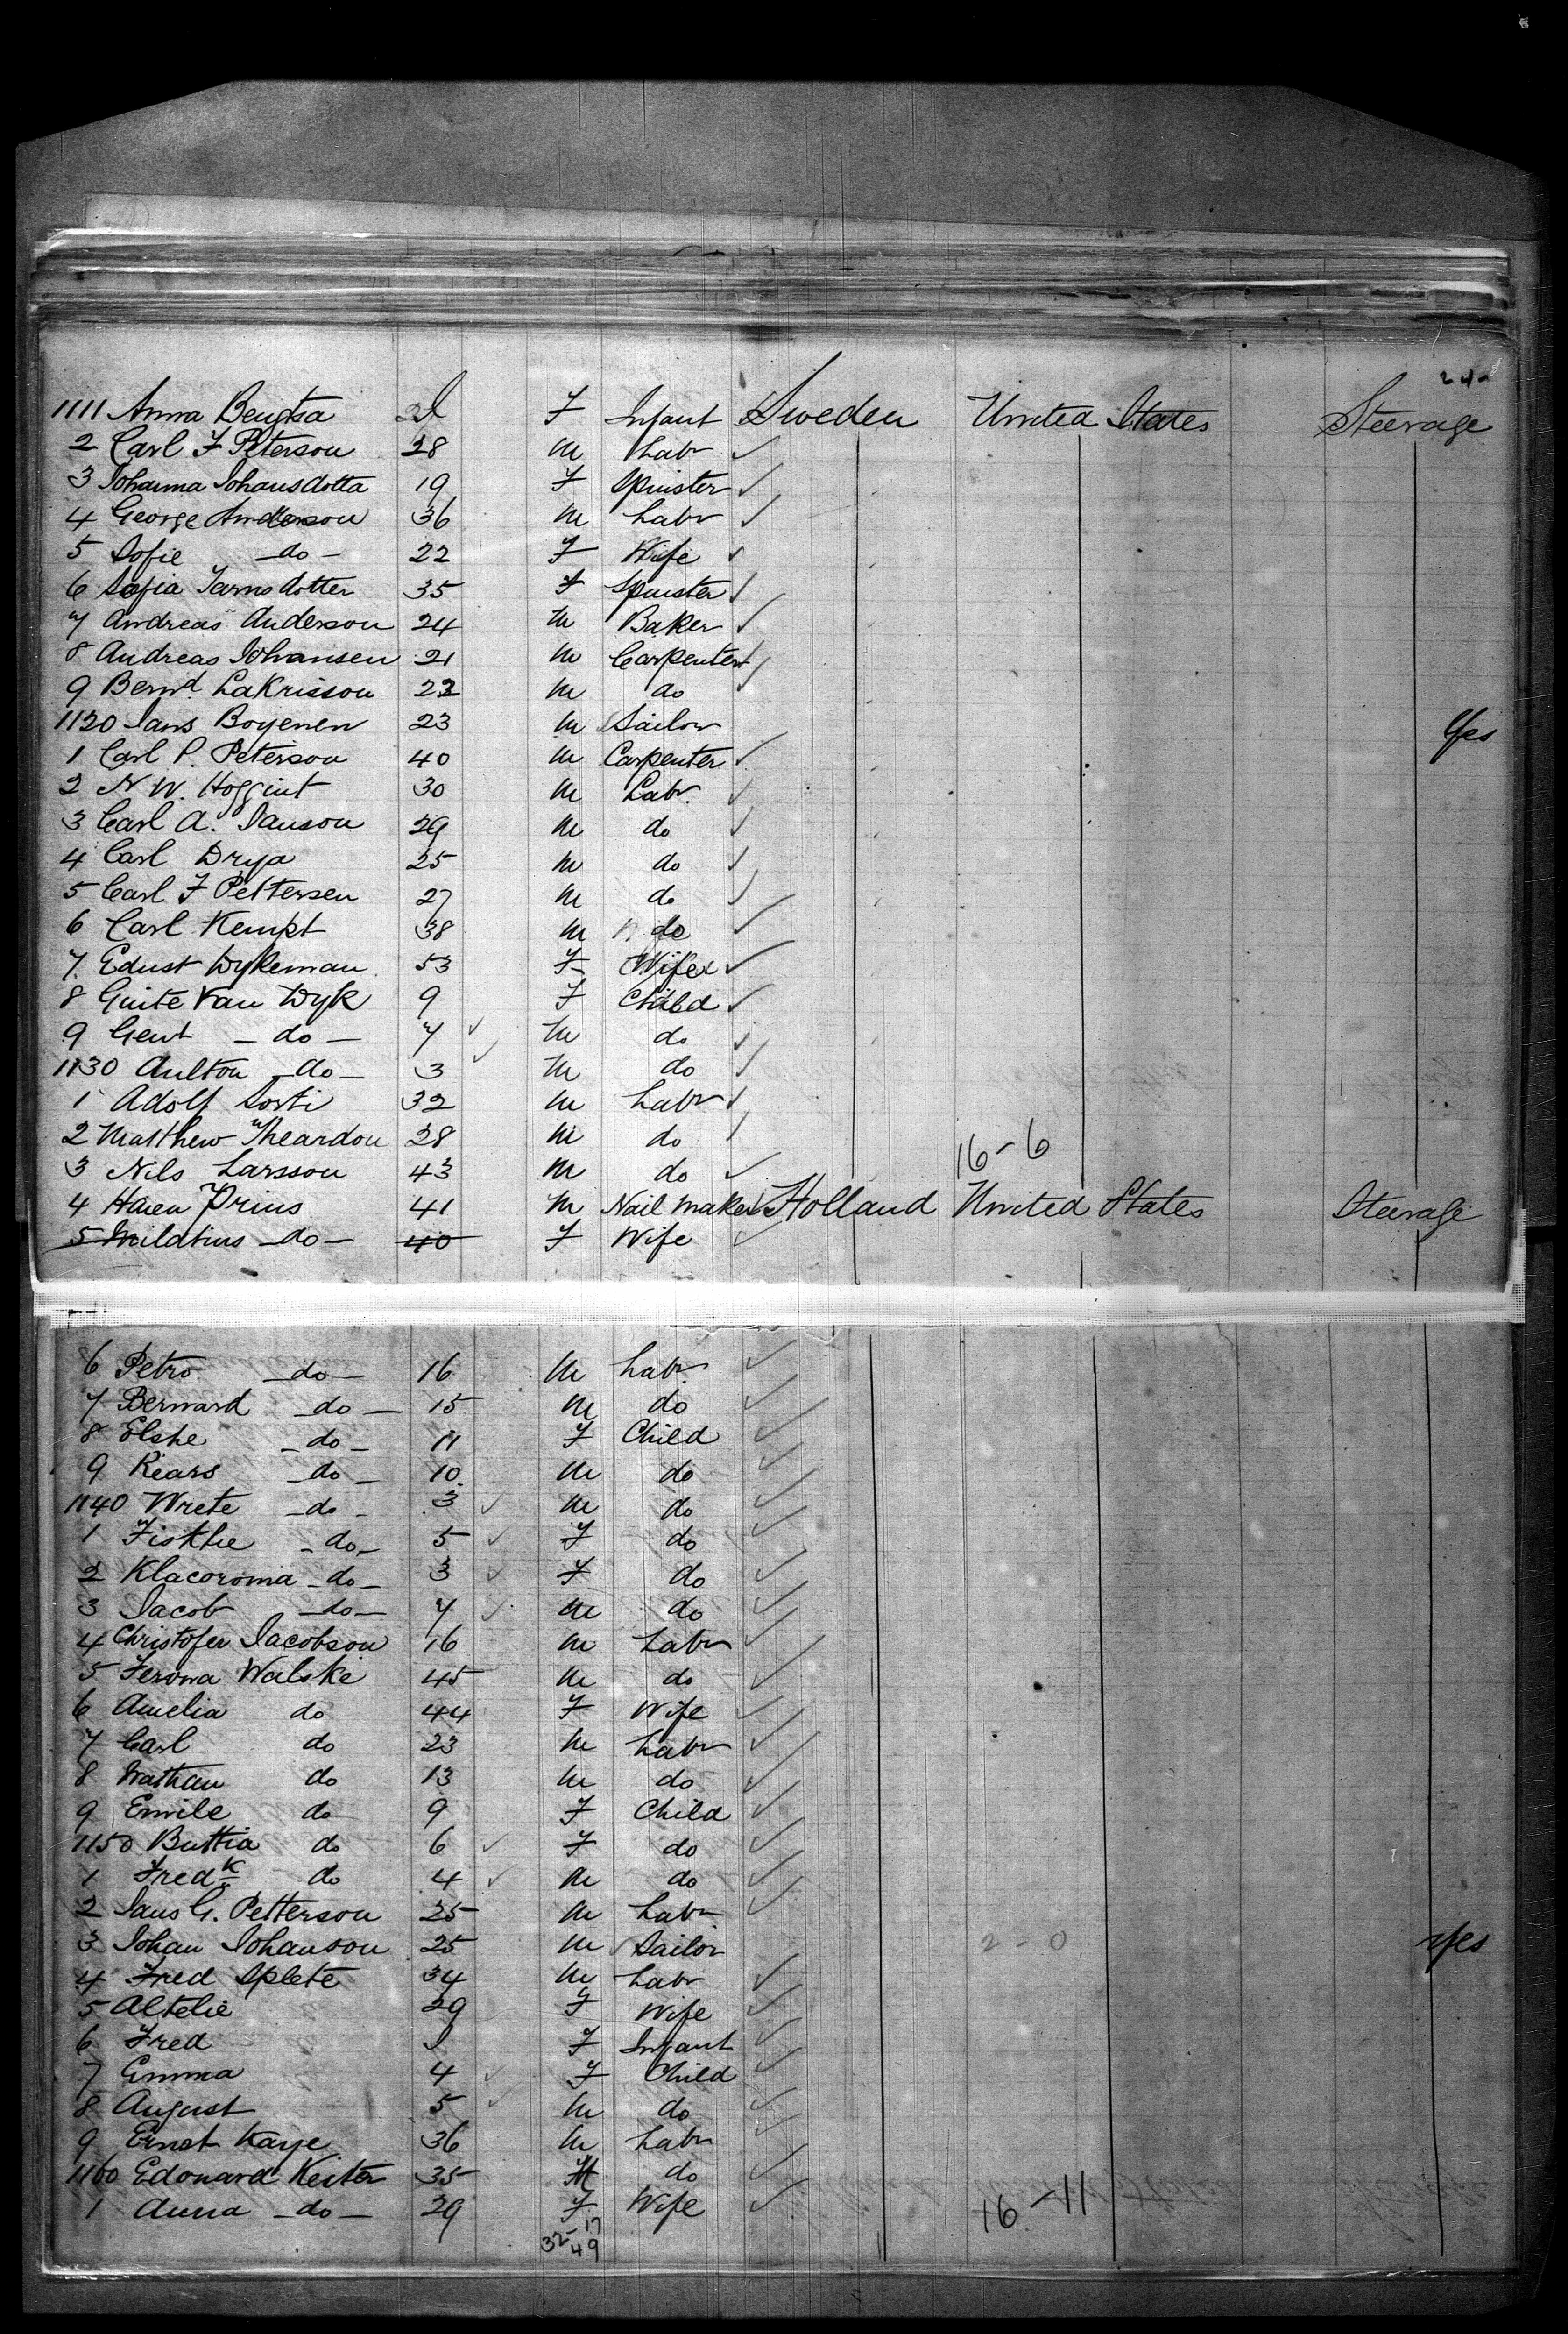 24
1111 Anna Bengtsa I F Infant Sweden United States Steerage
2 Carl F Peterson 28 m Labr
3 Johanna Johansdotta 19 F Spinster
4 George Anderson 36 m Labr
5 Sofie - do - 22 F Wife
6 Sofia Jarnsdotter 35 F Spinster
7 Andreas Anderson 24 m Baker
8 Andreas Johansen 21 m Carpenter
9 Bernd Lakrisson 22 m do
1120 Jans Boyenen 23 m Sailor Yes
1 Carl P. Peterson 40 m Carpenter
2 N W. Hoggint 30 m Labr.
3 Carl A. Janson 29 m do
4 Carl Drya 25 m do
5 Carl F Pettersen 27 m do
6 Carl Kempt 38 m do
7 Edust Wykeman 53 F Wife
8 Guite Van Wyk 9 F Child
9 Gent - do - 7 m do
1130 Aulton - do - 3 m do
1 Adolf Sorti 32 m Labr
2 Matthew Theardon 28 m do
16-6
3 Nils Larsson 43 m do
4 Haien Prins 41 m Nail maker Holland United States Steerage
5 Mildtins - do - 40 F Wife
6 Petro - do - 16 m Labr
7 Bernard - do - 15 m do
8 Elshe - do - 11 F Child
9 Riears - do - 10 m do
1140 Wrete - do - 3 m do
1 Fiskhe - do - 5 F do
2 Klacoroma - do - 3 F do
3 Jacob - do - 7 m do
4 Christofer Jacobson 16 m Labr
5 Ferona Walske 45 m do
6 Amelia do 44 F Wife
7 Carl do 23 m Labr
8 Nathan do 13 m do
9 Emile do 9 F Child
1150 Buttia do 6 F do
1 Fredk do 4 m do
2 Jans G. Petterson 25 m Labr
3 Johan Johanson 25 m Sailor 2-0 Yes
4 Fred Splete 34 m Labr
5 Altelie 29 F Wife
6 Fred I F Infant
7 Emma 4 F Child
8 August 5 m do
9 Ernst Kaye 36 m Labr
1160 Edouard Keiter 35 M do
1 Anna - do - 29 F Wife 16-11
32-17
49